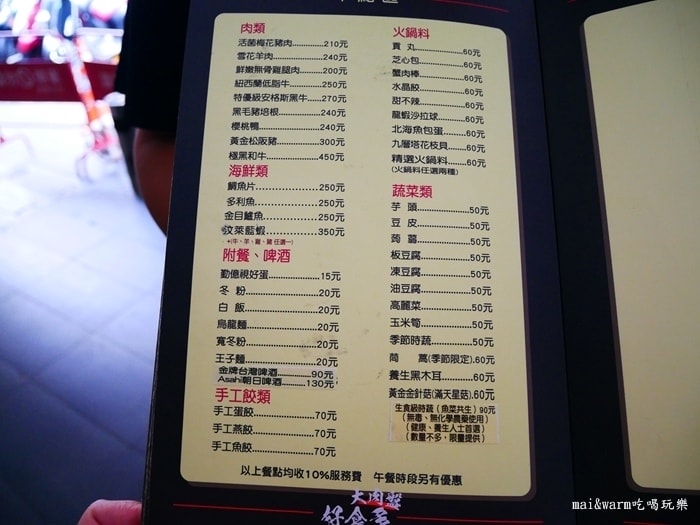 肉類
活菌梅花豬肉..............210元
雪花羊肉....................240元
鮮嫩無骨雞腿肉..........200元
紐西蘭低脂牛..............250元
特優級安格斯黑牛......270元
黑毛豬培根................240元
櫻桃鴨........................240元
黃金松阪豬................300元
極黑和牛....................450元
海鮮類
鯛魚片........................250元
多利魚........................250元
金目鱸魚....................250元
汶萊藍蝦....................350元
+(牛、羊、雞、豬 任選一)
附餐、啤酒
勤億視好蛋................15元
冬粉............................20元
白飯............................20元
烏龍麵........................20元
寬冬粉........................20元
王子麵........................20元
金牌台灣啤酒............90元
Asahi朝日啤酒..........130元
手工餃類
手工蛋餃....................70元
手工燕餃....................70元
手工魚餃....................70元
火鍋料
貢丸............................50元
芝心包........................60元
蟹肉棒........................60元
水晶餃........................60元
甜不辣........................60元
龍蝦沙拉球................60元
北海魚包蛋................60元
九層塔花枝貝............60元
精選火鍋料................60元
(火鍋料任選兩種)
蔬菜類
芋頭............................50元
豆皮............................50元
蒟蒻............................50元
板豆腐........................50元
凍豆腐........................50元
油豆腐........................50元
高麗菜........................50元
玉米筍........................50元
季節時蔬....................50元
茼蒿(季節限定).60元
養生黑木耳................60元
黃金金針菇(滿天星菇).60元
生食級時蔬(魚菜共生)90元
(無毒、無化學農藥使用)
(健康、養生人士首選)
(數量不多,限量提供)
以上餐點均收10%服務費 午餐時段另有優惠
mai&warm吃喝玩樂